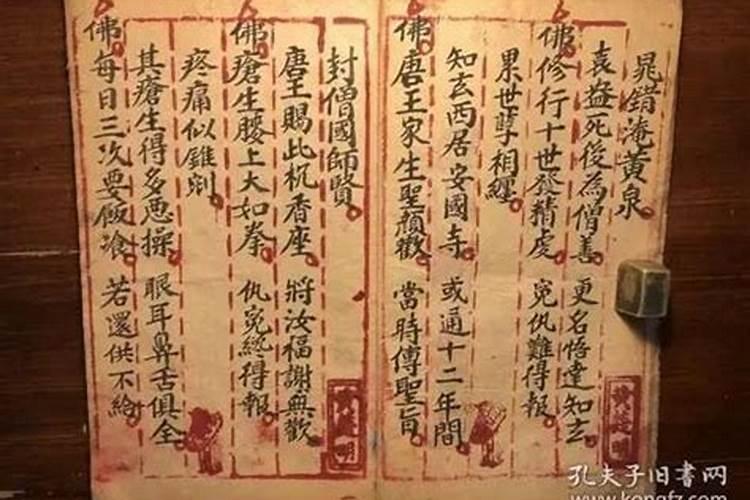 晁錯淹黃泉
袁益死後為僧善 更名悟達知玄
佛修行十世發精虔 冤仇難得報
累世孽相纏
知玄西居安國寺 或通十二年間
佛唐王家生聖顏歡 當時傳聖旨
封僧國師賢
唐王賜此杌香座 將汝福謝無歡
佛瘡生腰上大如拳 仇冤終得報
疼痛似錐剜
其瘡生得多悪操 眼耳鼻舌俱全
佛每日三次要飯飡 若還供不給
孔夫子旧书网